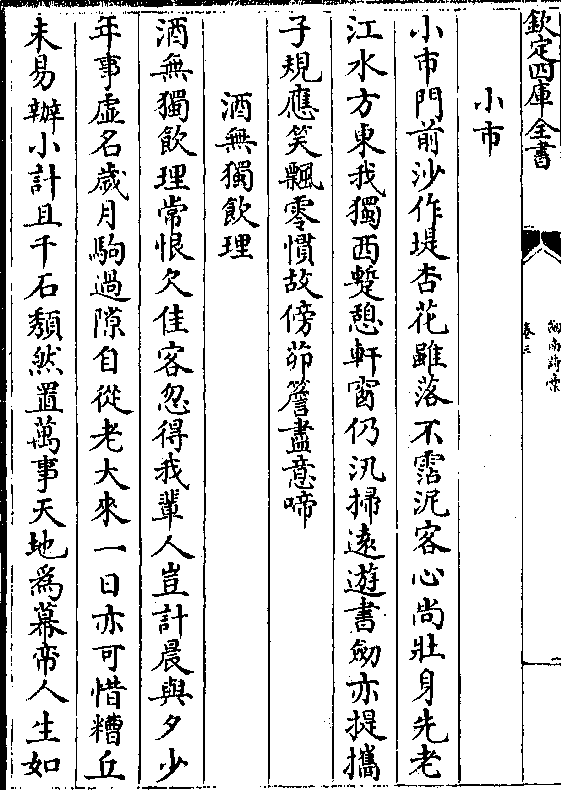 欽定四庫全書
劒南詩槀
卷三
小市
小市門前沙作堤杏花雖落不霑泥客心尚壯身先老
江水方東我獨西蹔憩軒窗仍汎掃遠遊書劒亦提攜
子規應笑飄零慣故傍茆簷盡意啼
酒無獨飲理
酒無獨飲理常恨欠佳客忽得我輩人豈計晨與夕少
年事虛名歲月駒過隙自從老大來一日亦可惜糟丘
未易辦小計且千石頽然置萬事天地為幕帟人生如